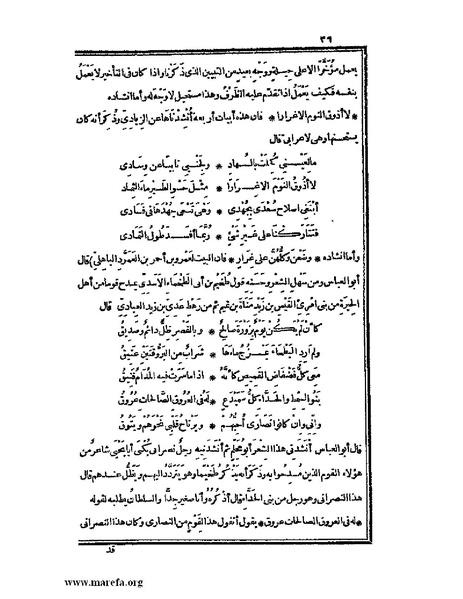 ٣٩
يعمل مؤخرًا الا على حيلة ووجه بعيد من التبيين الذى ذكرنا واذا كان فى التأخير لا يعمل
بنفسه فكيف يعمل اذا تقدم عليه الظرف وهذا مستحيل لا وجه له وأما انشاده
لا أذوق النوم الا غرارا * فان هذه أبيات أربعة أنشدناها عن الزيادى وذكر أنه كان
يستحسنها وهى لاعرابى قال
ما لعينى كحلت بالسهاد * ولجنبى نابيا عن وسادى
لا أذوق النوم الا غرارا * مثل حسو الطير ماء الثماد
أبتغى اصلاح سعدى بجهدى * وهى تسعى جهدها فى فسادى
فتتاركنا على غير شئ * ربما أفسد طول التمادى
وأما انشاده * وضعن وكلهن على غرار * فان البيت لعمرو بن أحمر بن العمرد الباهلى) قال
أبو العباس ومن سهل الشعر وحسنه قول طخيم بن أبى الطخماء الاسدى يمدح قوما من أهل
الحيرة من بنى امرئ القيس بن زيد مناة بن تميم ثم من رهط عدى بن زيد العبادى قال
كأن لم يكن يوم بزورة صالح * وبالقصر ظل دائم وصديق
ولم أرد البطحاء يمزج ماءها * شراب من البروقتين عتيق
معى كل فضفاض القميص كأنه * اذا ما سرت فيه المدام فنيق
بنو السمط والحداء كل سميدع * له فى العروق الصالحات عروق
وانى وان كانوا نصارى أحبهم * ويرتاح قلبى نحوهم ويتوق
قال أبو العباس أنشدنى هذا الشعر أبو محلم ثم أنشدنيه رجل نصرانى يكنى أبا يحيى شاعر من
هؤلاء القوم الذين مدحوا به وذكر أنه يذكر طخيما وهو يتردد اليهم ويظل عندهم قال
هذا النصرانى وهو رجل من بنى الحداء قال أذكره وأنا صغير جدا والسلطان يطلبه لقوله
له فى العروق الصالحات عروق * يقول أتقول هذا لقوم من النصارى وكان هذا النصرانى
قد
www.marefa.org